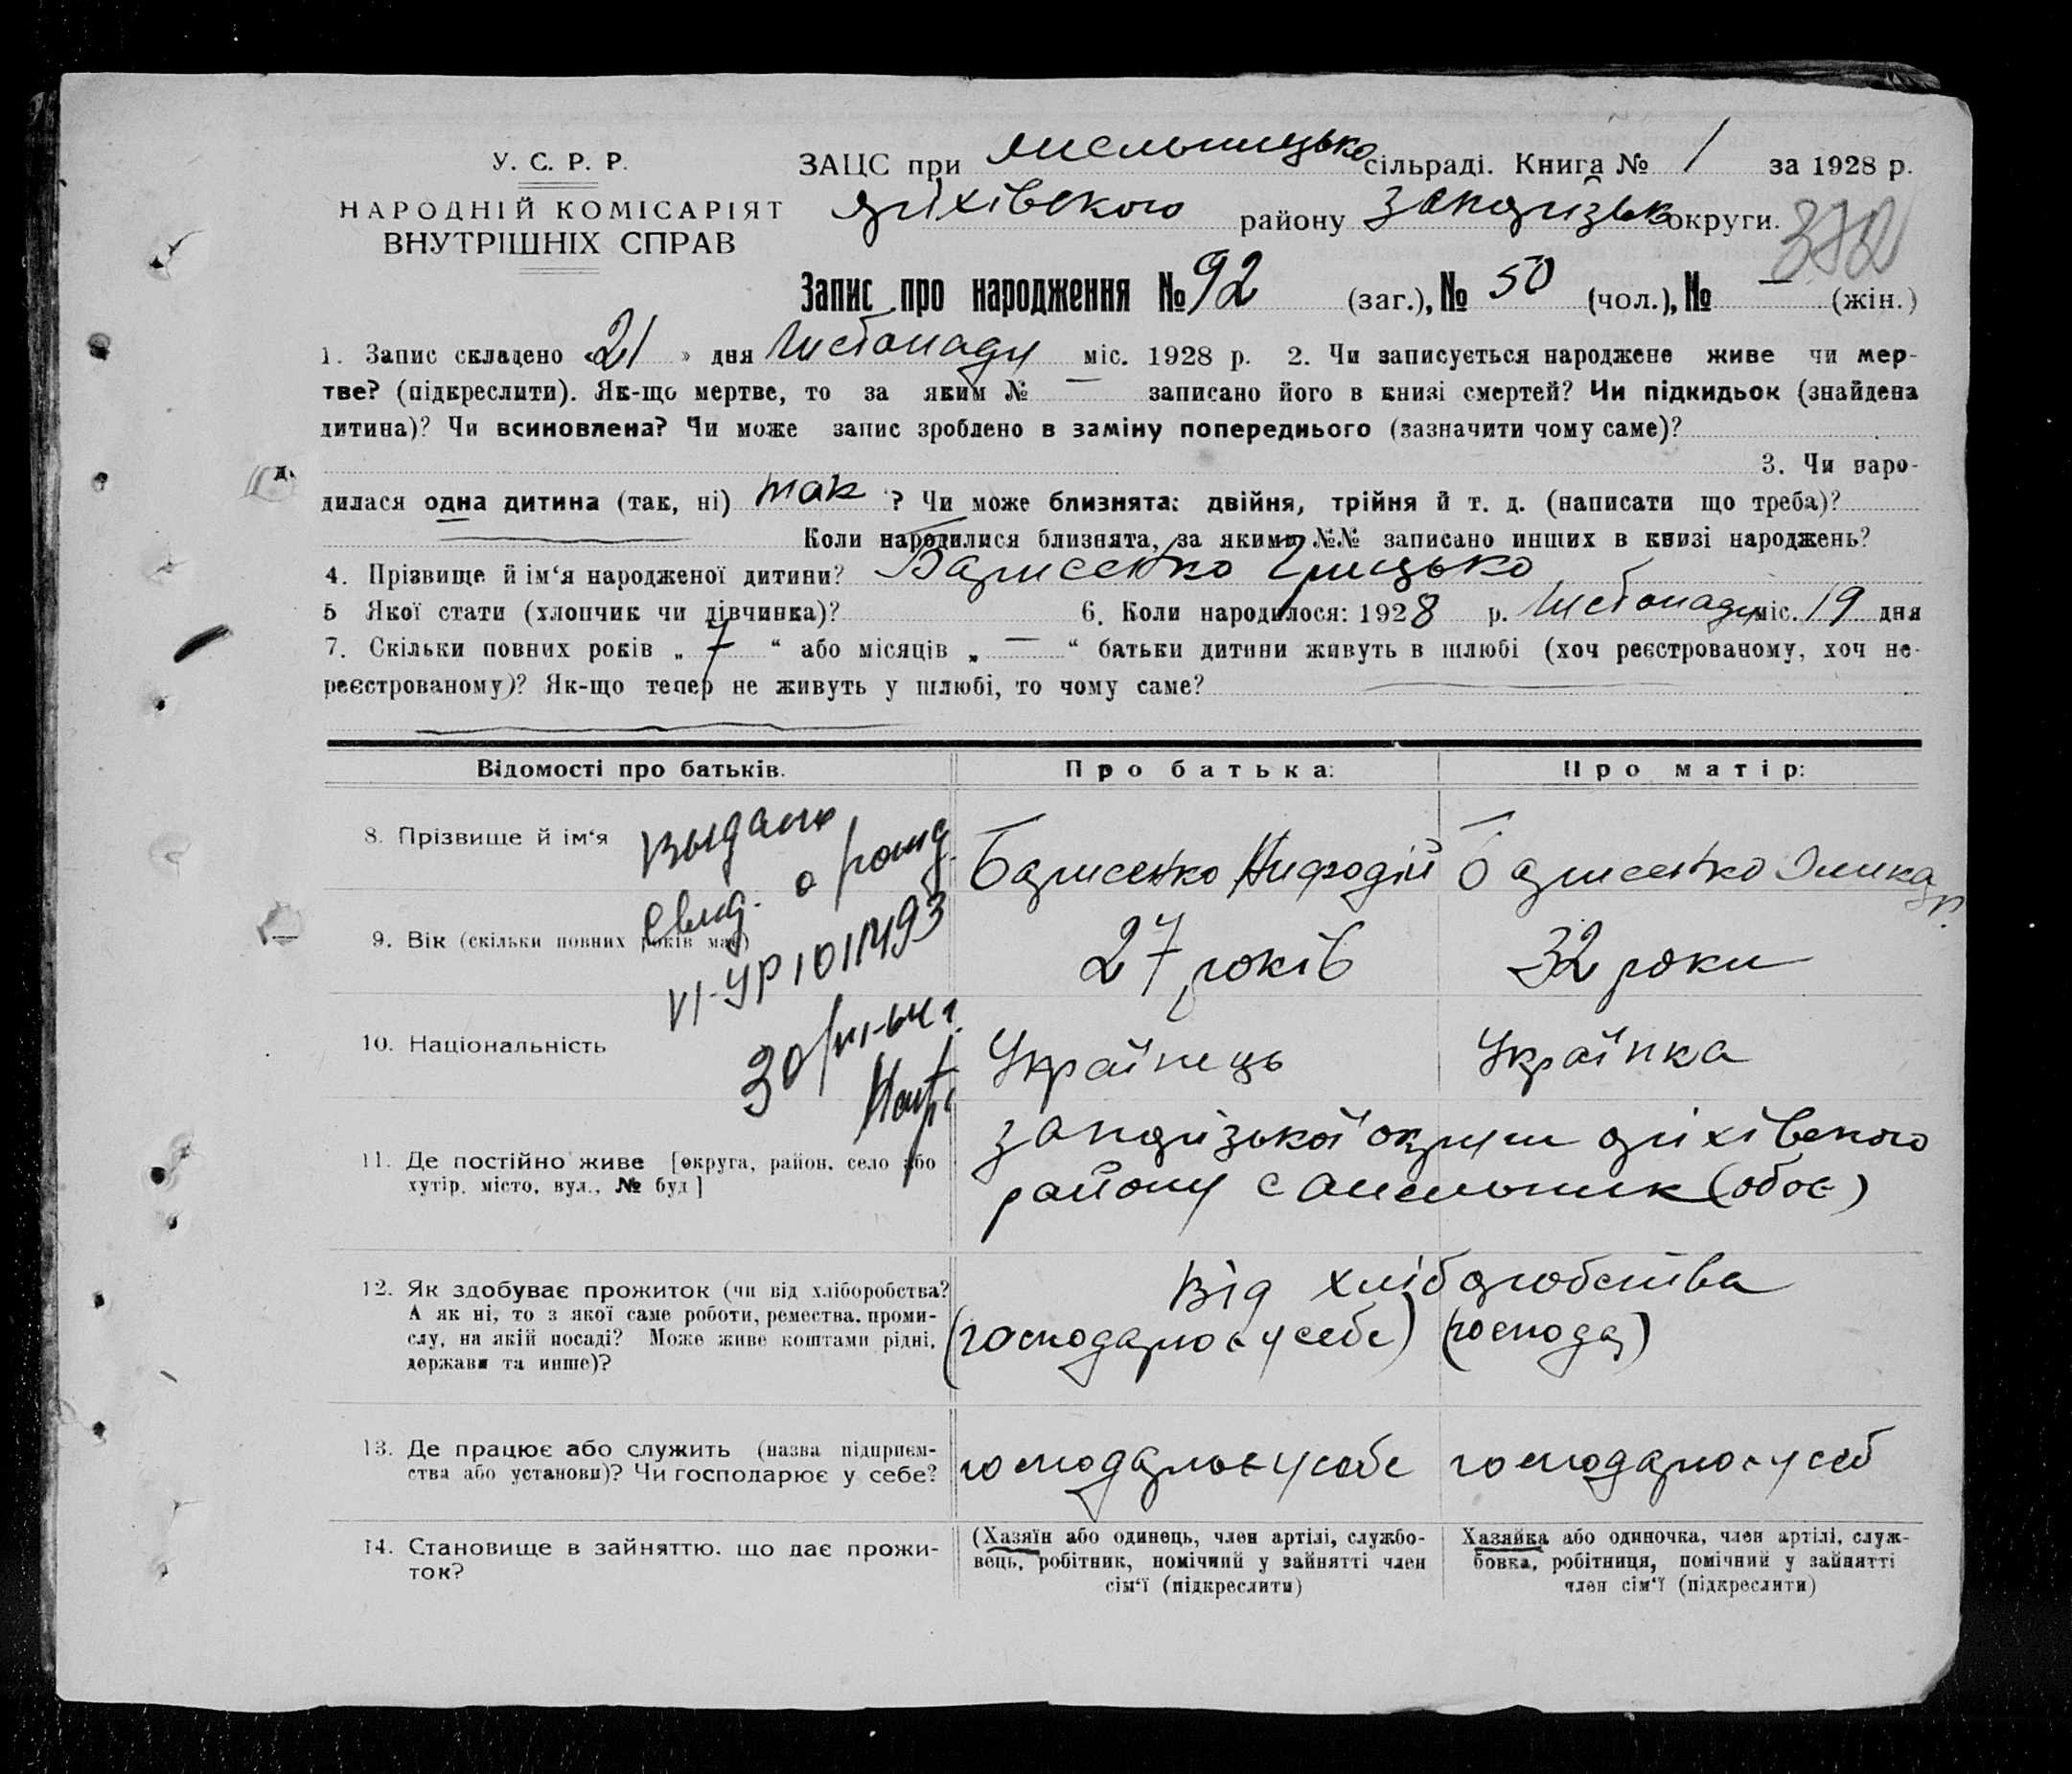 У. С. Р. Р.
НАРОДНІЙ КОМІСАРІЯТ
ВНУТРІШНІХ СПРАВ
ЗАЦС при сільраді. Книга № 1 за 1928 р.
району округи.
372
Запис про народження № 92 (заг.), № 50 (чол.), № — (жін.)
1. Запис складено «21» дня Листопаду міс. 1928 р. 2. Чи записується народжене живе чи мер-
тве? (підкреслити). Як-що мертве, то за яким № — записано його в книзі смертей? Чи підкидьок (знайдена
дитина)? Чи всиновлена? Чи може запис зроблено в заміну попереднього (зазначити чому саме)?
3. Чи наро-
дилася одна дитина (так, ні) так ? Чи може близнята: двійня, трійня й т. д. (написати що треба)?
Коли народилися близнята, за якими №№ записано инших в книзі народжень?
4. Прізвище й ім‘я народженої дитини? Борисенко Грицько
5 Якої стати (хлопчик чи дівчинка)? 6. Коли народилося: 1928 р. Листопаду міс. 19 дня
7. Скільки повних років „ 7 “ або місяців „ — “ батьки дитини живуть в шлюбі (хоч реєстрованому, хоч не-
реєстрованому)? Як-що тепер не живуть у шлюбі, то чому саме?
Відомості про батьків. Про батька: Про матір:
8. Прізвище й ім‘я Борисенко Нифодій Борисенко
Выдано
свид. о рожд.
9. Вік (скільки повних років має) 27 років 32 роки
10. Національність Українець Українка
11. Де постійно живе [округа, район, село або
хутір, місто, вул., № буд]
запорізької округи оріхівського
району с (обоє)
12. Як здобуває прожиток (чи від хліборобства?
А як ні, то з якої саме роботи, ремества, проми-
слу, на якій посаді? Може живе коштами рідні,
держави та инше)?
Від хліборобства
(господарює у себе) (господар)
13. Де працює або служить (назва підприєм-
ства або установи)? Чи господарює у себе?
господарює у себе господарює у себ
14. Становище в зайняттю, що дає прожи-
ток?
(Хазяїн або одинець, член артілі, службо-
вець, робітник, помічний у зайнятті член
сім‘ї (підкреслити)
Хазяйка або одиночка, член артілі, служ-
бовка, робітниця, помічний у зайнятті
член сім‘ї (підкреслити)